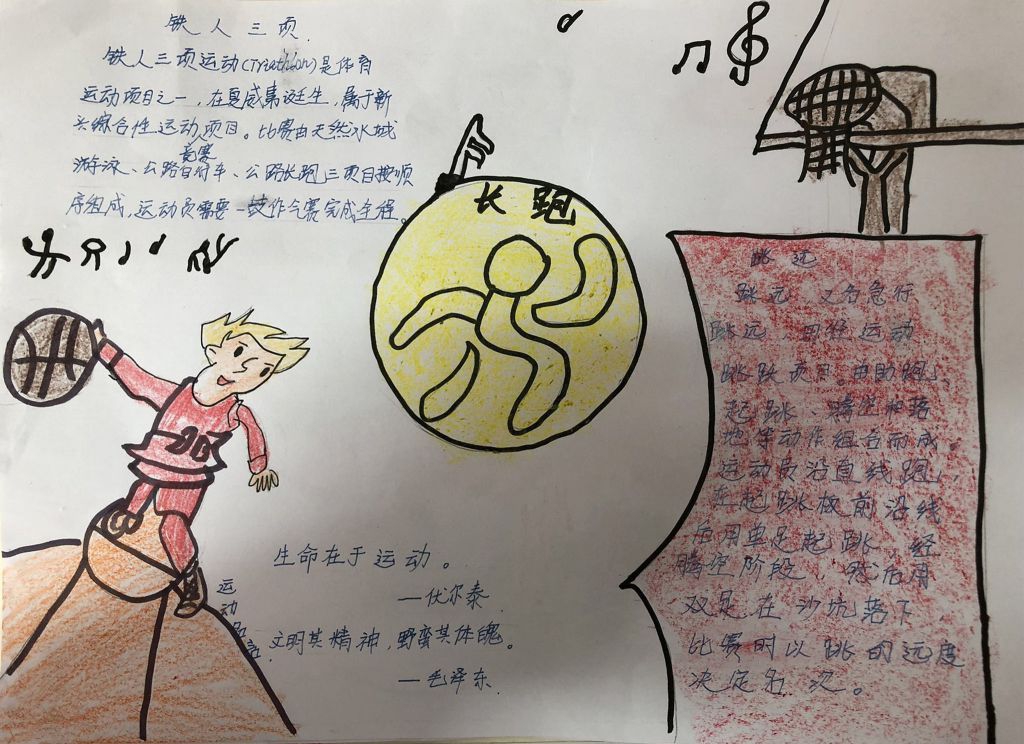 铁人三项
铁人三项运动(Triathlon)是体育
运动项目之一，在夏威夷诞生，属于新
兴综合性运动项目。比赛由天然水域
游泳、公路自行车、公路长跑三项目按顺
竞赛
序组成，运动员需要一鼓作气赛完成全程。
长跑
跳远
跳远，又名急行
跳远 田径运动
跳跃项目。由助跑、
起跳、腾空和落
地等动作组合而成
运动员沿直线跑，
在起跳板前沿线
后用单足起跳 经
腾空阶段，然后用
双足在沙坑落下
比赛时以跳的远度
决定名次。
生命在于运动。
—伏尔泰
运动名言
文明其精神，野蛮其体魄。
—毛泽东